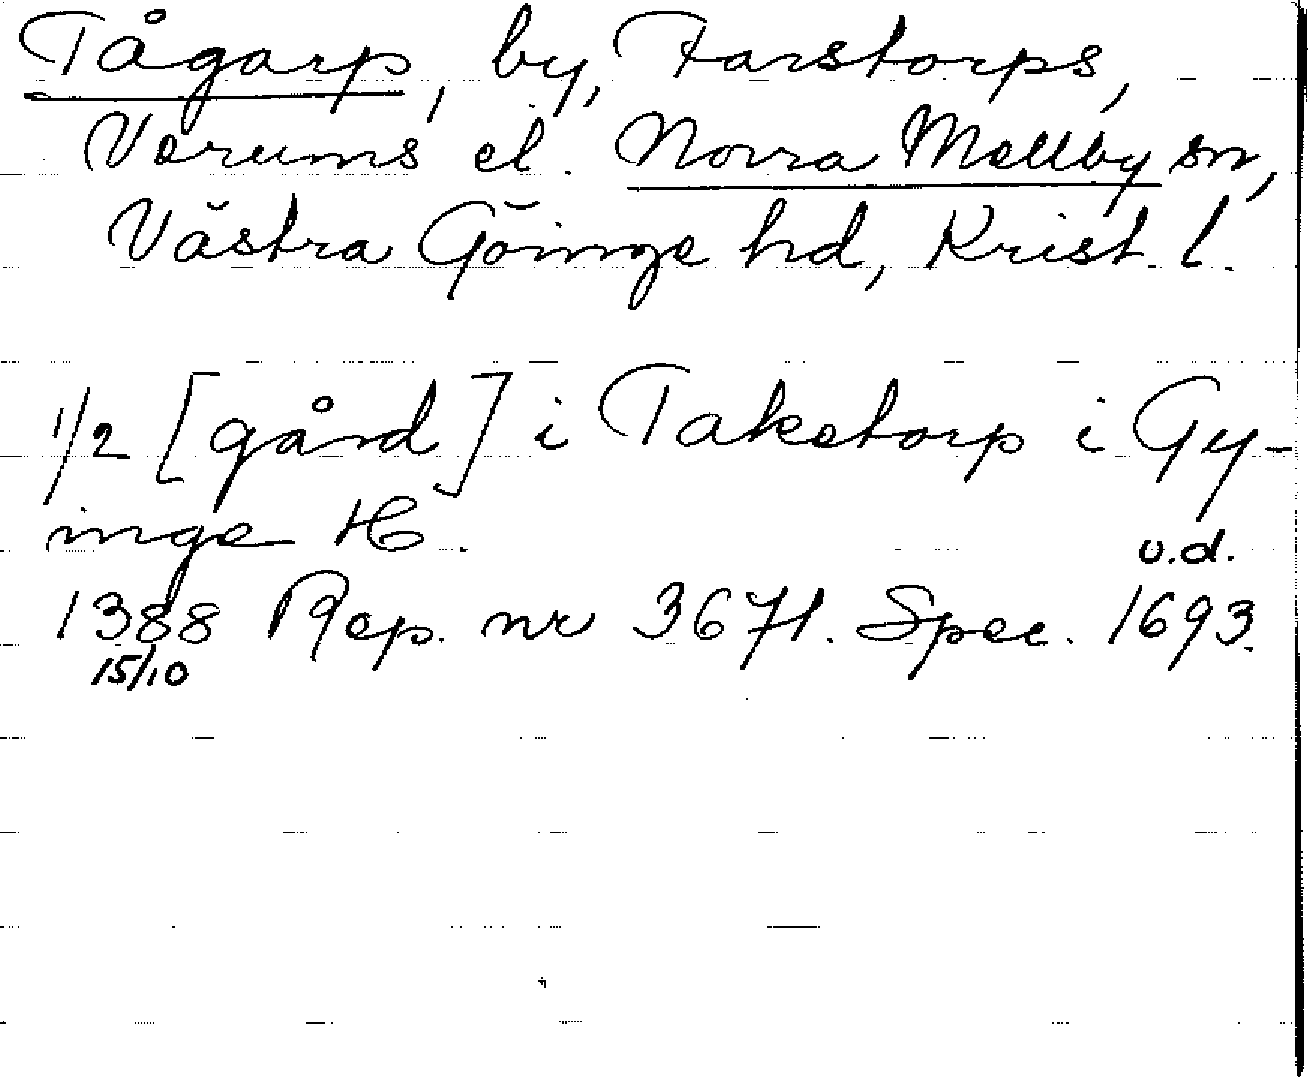 Tågarp, by, Farstorps,
Verums el. Norra Mellby sn,
Västra Göinge hd, Krist. l.
1/2 [gård] i Taketorp i Gy-
inge H.
u.d.
1388 Rep. nr 3671. Spec. 1693.
15/10